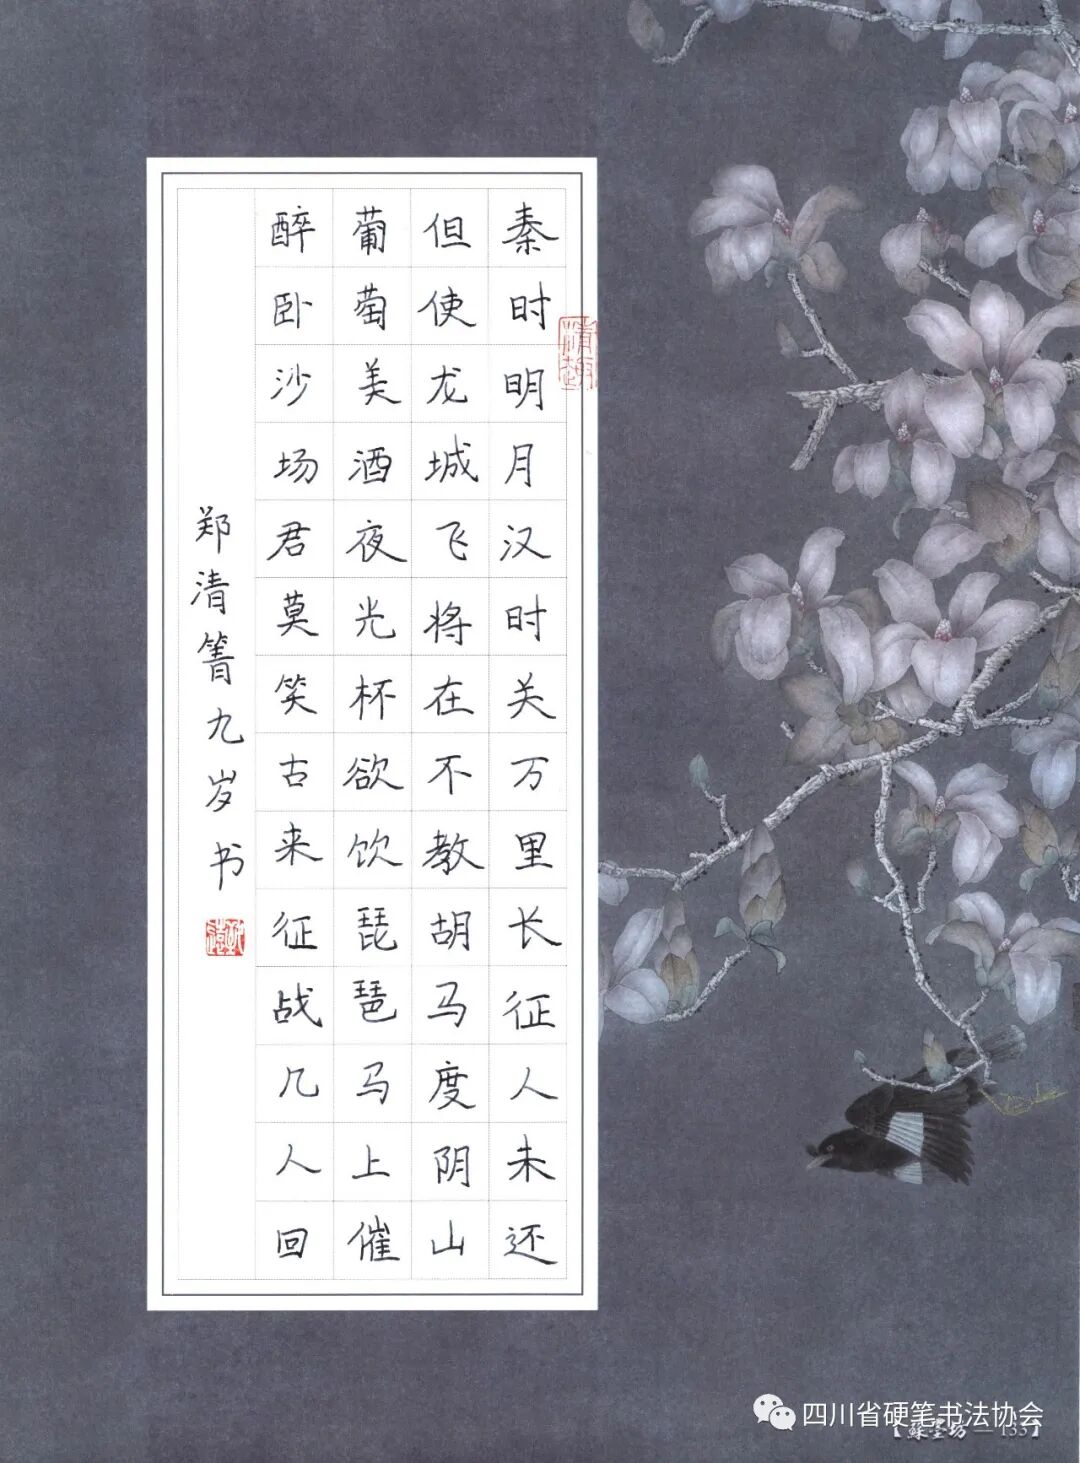 秦时明月汉时关万里长征人未还
但使龙城飞将在不教胡马度阴山
葡萄美酒夜光杯欲饮琵琶马上催
醉卧沙场君莫笑古来征战几人回
郑清箐九岁书
四川省硬笔书法协会